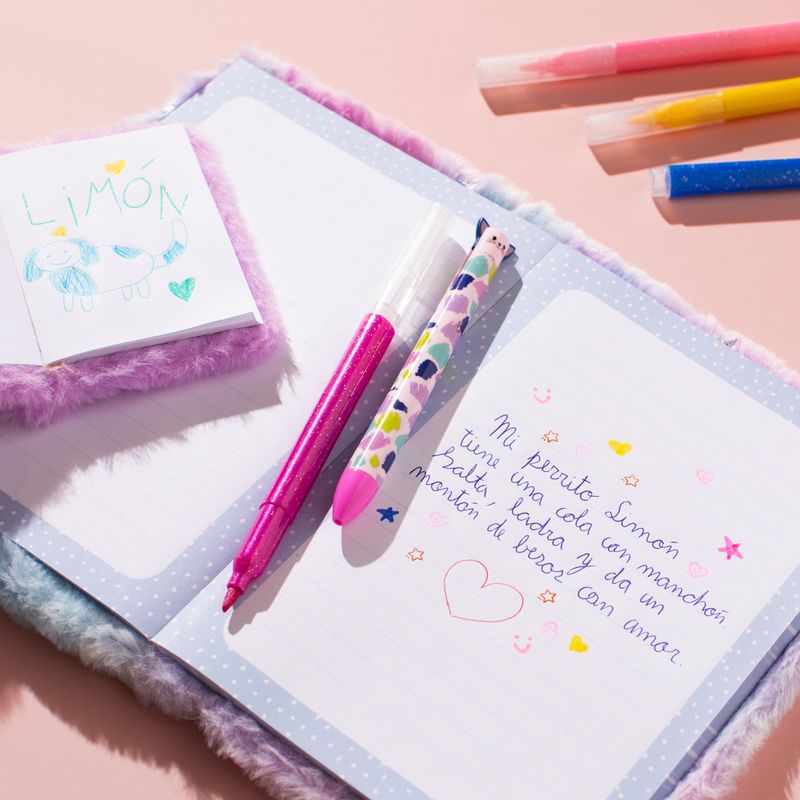 LiMÓN
Mi perrito Limón
tiene una cola con manchón.
Salta, ladra y da un
montón de besos con amor.